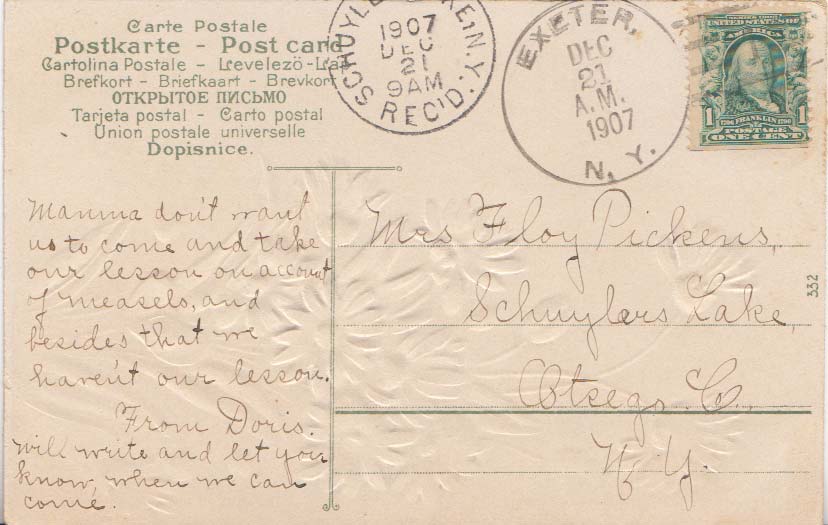 Carte Postale
Postkarte - Post card
Cartolina Postale - Levelező-Lap
Brefkort - Briefkaart - Brevkort
ОТКРЫТОЕ ПИСЬМО
Tarjeta postal - Carto postal
Union postale universelle
Dopisnice.
1907
DEC
21
9AM
REC'D.
N.Y.
EXETER,
DEC
21
A.M.
1907
N. Y.
SERIES 1902
UNITED STATES OF
AMERICA
1706 FRANKLIN 1790
POSTAGE
1 ONE CENT 1
Mamma don't want
us to come and take
our lesson on account
of measels, and
besides that we
haven't our lesson.
From Doris.
will write and let you
know, when we can
come.
Mrs Floy Pickens,
Schuylers Lake,
Otsego Co.,
N. Y.
332